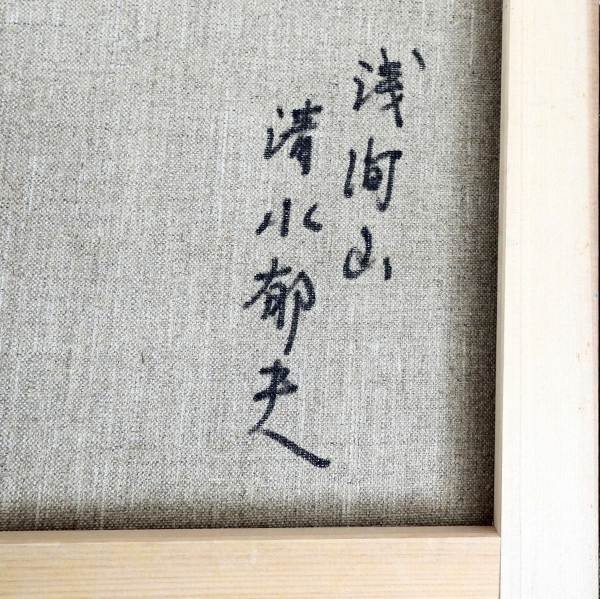 浅间山
清水郁夫